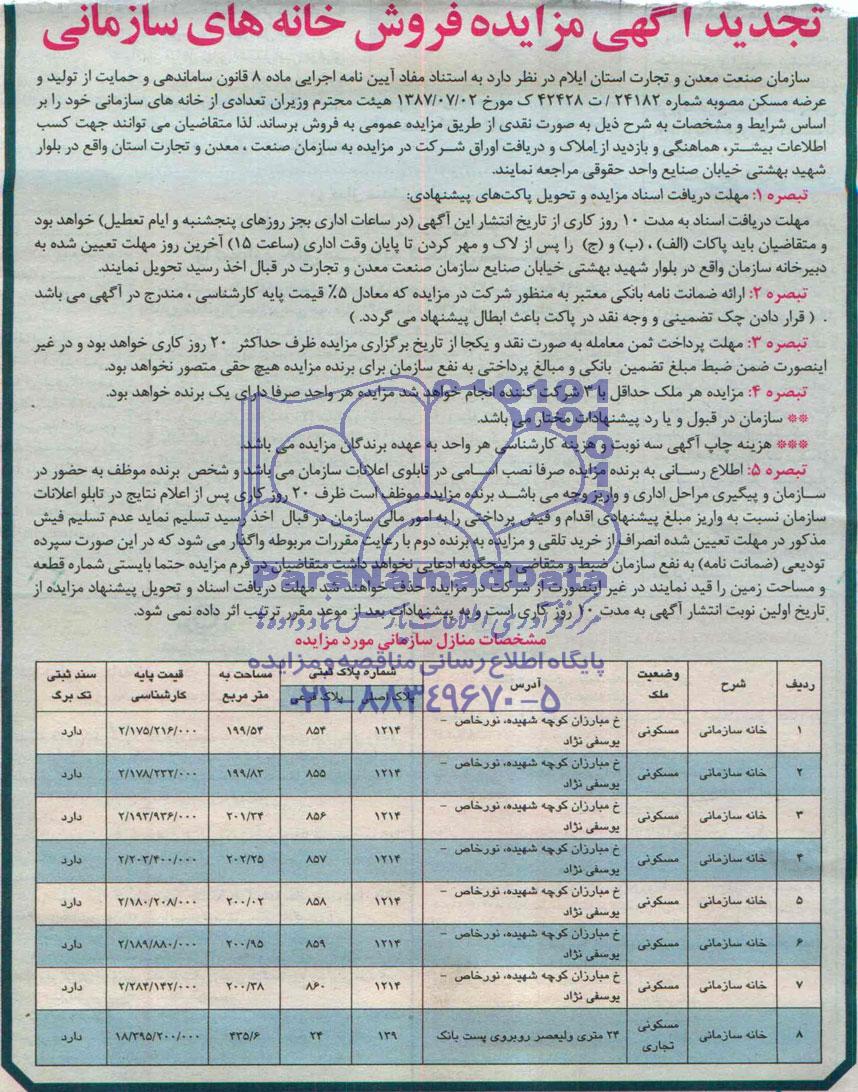 تجدید آگهی مزایده فروش خانه های سازمانی
سازمان صنعت معدن و تجارت استان ایلام در نظر دارد به استناد مفاد آیین نامه اجرایی ماده ۸ قانون ساماندهی و حمایت از تولید و
عرضه مسکن مصوبه شماره ۲۴۱۸۲ / ت ۴۲۴۲۸ ک مورخ ۱۳۸۷/۰۷/۰۲ هیئت محترم وزیران تعدادی از خانه های سازمانی خود را بر
اساس شرایط و مشخصات به شرح ذیل به صورت نقدی از طریق مزایده عمومی به فروش برساند. لذا متقاضیان می توانند جهت کسب
اطلاعات بیشتر، هماهنگی و بازدید از املاک و دریافت اوراق شرکت در مزایده به سازمان صنعت ، معدن و تجارت استان واقع در بلوار
شهید بهشتی خیابان صنایع واحد حقوقی مراجعه نمایند.
تبصره ۱: مهلت دریافت اسناد مزایده و تحویل پاکت‌های پیشنهادی:
مهلت دریافت اسناد به مدت ۱۰ روز کاری از تاریخ انتشار این آگهی (در ساعات اداری بجز روزهای پنجشنبه و ایام تعطیل) خواهد بود
و متقاضیان باید پاکات (الف) ، (ب) و (ج) را پس از لاک و مهر کردن تا پایان وقت اداری (ساعت ۱۵) آخرین روز مهلت تعیین شده به
دبیرخانه سازمان واقع در بلوار شهید بهشتی خیابان صنایع سازمان صنعت معدن و تجارت در قبال اخذ رسید تحویل نمایند.
تبصره ۲: ارائه ضمانت نامه بانکی معتبر به منظور شرکت در مزایده که معادل ۵٪ قیمت پایه کارشناسی ، مندرج در آگهی می باشد
. ( قرار دادن چک تضمینی و وجه نقد در پاکت باعث ابطال پیشنهاد می گردد. )
تبصره ۳: مهلت پرداخت ثمن معامله به صورت نقد و یکجا از تاریخ برگزاری مزایده ظرف حداکثر ۲۰ روز کاری خواهد بود و در غیر
اینصورت ضمن ضبط مبلغ تضمین بانکی و مبالغ پرداختی به نفع سازمان برای برنده مزایده هیچ حقی متصور نخواهد بود.
تبصره ۴: مزایده هر ملک حداقل با ۳ شرکت کننده انجام خواهد شد مزایده هر واحد صرفا دارای یک برنده خواهد بود.
** سازمان در قبول و یا رد پیشنهادات مختار می باشد.
*** هزینه چاپ آگهی سه نوبت و هزینه کارشناسی هر واحد به عهده برندگان مزایده می باشد.
تبصره ۵: اطلاع رسانی به برنده مزایده صرفا نصب اسامی در تابلوی اعلانات سازمان می باشد و شخص برنده موظف به حضور در
سازمان و پیگیری مراحل اداری و واریز وجه می باشد برنده مزایده موظف است ظرف ۲۰ روز کاری پس از اعلام نتایج در تابلو اعلانات
سازمان نسبت به واریز مبلغ پیشنهادی اقدام و فیش پرداختی را به امور مالی سازمان در قبال اخذ رسید تسلیم نماید عدم تسلیم فیش
مذکور در مهلت تعیین شده انصراف از خرید تلقی و مزایده به برنده دوم با رعایت مقررات مربوطه واگذار می شود که در این صورت سپرده
تودیعی (ضمانت نامه) به نفع سازمان ضبط و متقاضی هیچگونه ادعایی نخواهد داشت متقاضیان در فرم مزایده حتما بایستی شماره قطعه
و مساحت زمین را قید نمایند در غیر اینصورت از شرکت در مزایده حذف خواهند شد مهلت دریافت اسناد و تحویل پیشنهاد مزایده از
تاریخ اولین نوبت انتشار آگهی به مدت ۱۰ روز کاری است و به پیشنهادات بعد از موعد مقرر ترتیب اثر داده نمی شود.
ParsNamadData
مرکز فرآوری اطلاعات پارس نماد داده ها
مشخصات منازل سازمانی مورد مزایده
پایگاه اطلاع رسانی مناقصه و مزایده
۰۲۱-۸۸۳۴۹۶۷۰-۵
ردیف شرح وضعیت ملک آدرس شماره پلاک ثبتی پلاک اصلی پلاک فرعی مساحت به متر مربع قیمت پایه کارشناسی سند ثبتی تک برگ
۱ خانه سازمانی مسکونی خ مبارزان کوچه شهیده، نورخاص – یوسفی نژاد ۱۲۱۴ ۸۵۴ ۱۹۹/۵۴ ۲/۱۷۵/۲۱۶/۰۰۰ دارد
۲ خانه سازمانی مسکونی خ مبارزان کوچه شهیده، نورخاص – یوسفی نژاد ۱۲۱۴ ۸۵۵ ۱۹۹/۸۳ ۲/۱۷۸/۲۳۲/۰۰۰ دارد
۳ خانه سازمانی مسکونی خ مبارزان کوچه شهیده، نورخاص – یوسفی نژاد ۱۲۱۴ ۸۵۶ ۲۰۱/۳۴ ۲/۱۹۳/۹۳۶/۰۰۰ دارد
۴ خانه سازمانی مسکونی خ مبارزان کوچه شهیده، نورخاص – یوسفی نژاد ۱۲۱۴ ۸۵۷ ۲۰۲/۲۵ ۲/۲۰۳/۴۰۰/۰۰۰ دارد
۵ خانه سازمانی مسکونی خ مبارزان کوچه شهیده، نورخاص – یوسفی نژاد ۱۲۱۴ ۸۵۸ ۲۰۰/۰۲ ۲/۱۸۰/۲۰۸/۰۰۰ دارد
۶ خانه سازمانی مسکونی خ مبارزان کوچه شهیده، نورخاص – یوسفی نژاد ۱۲۱۴ ۸۵۹ ۲۰۰/۹۵ ۲/۱۸۹/۸۸۰/۰۰۰ دارد
۷ خانه سازمانی مسکونی خ مبارزان کوچه شهیده، نورخاص – یوسفی نژاد ۱۲۱۴ ۸۶۰ ۲۰۰/۳۸ ۲/۲۸۴/۱۴۲/۰۰۰ دارد
۸ خانه سازمانی مسکونی تجاری ۲۴ متری ولیعصر روبروی پست بانک ۱۳۹ ۲۴ ۴۳۵/۶ ۱۸/۳۹۵/۲۰۰/۰۰۰ دارد